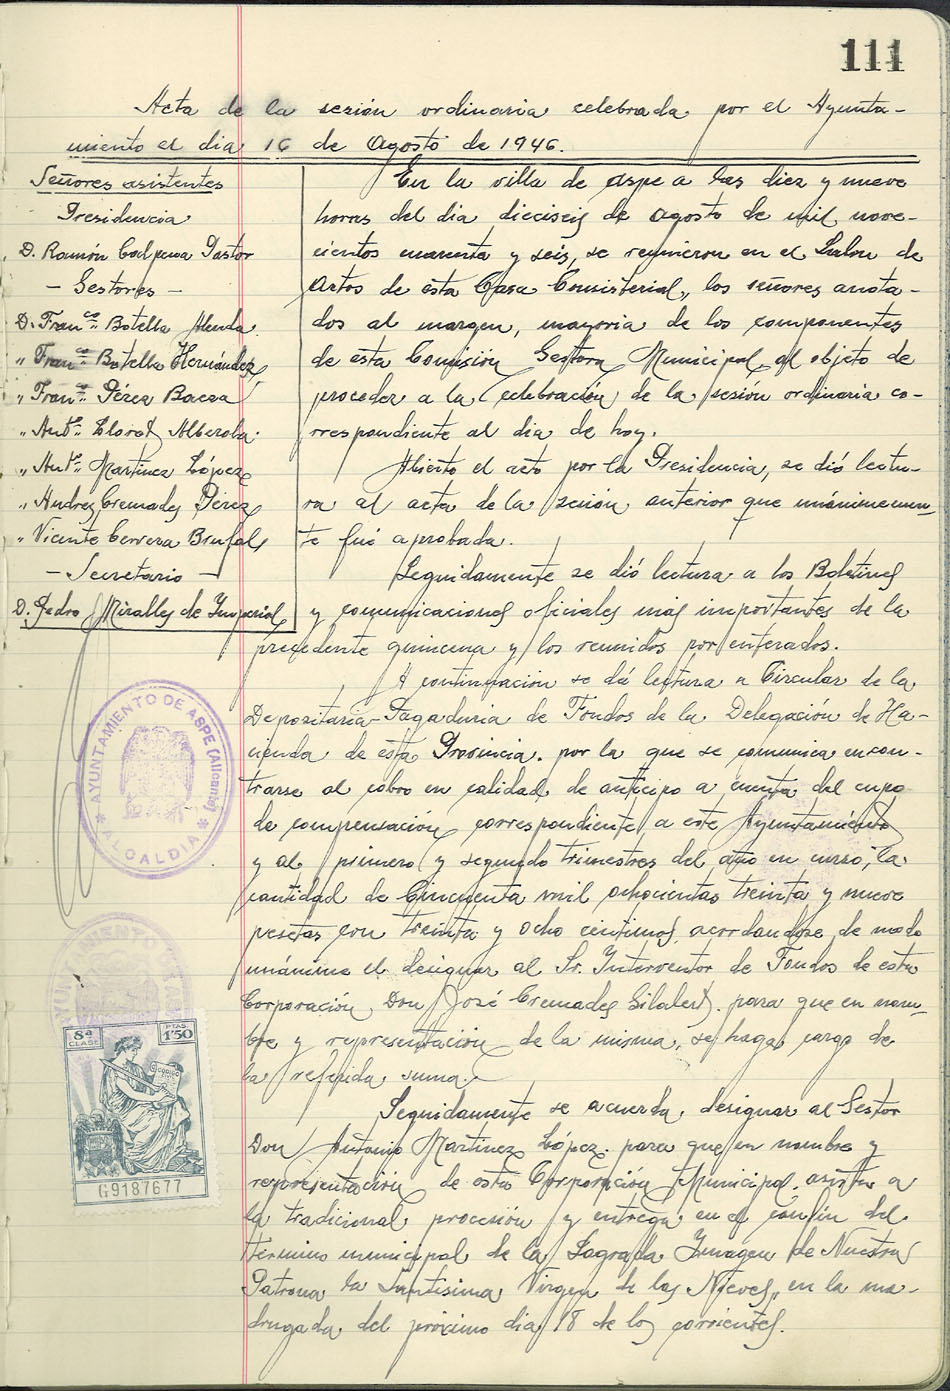 111
Acta de la sesión ordinaria celebrada por el Ayunta-
miento el dia 16 de Agosto de 1946.
Señores asistentes
Presidencia
D. Ramón Calpena Pastor
- Gestores -
D. Fran.co Botella Alenda
" Fran.co Botella Hernández
" Fran.co Pérez Baeza
" Ant.o Lloret Alberola
" Ant.o Martinez López
" Andrés Cremades Pérez
" Vicente Cerrera Brufal
- Secretario -
D. Pedro Miralles de Imperial
En la villa de Aspe a las diez y nueve
horas del dia dieciseis de Agosto de mil nove-
cientos cuarenta y seis, se reunieron en el Salon de
Actos de esta Casa Consistorial, los señores anota-
dos al margen, mayoria de los componentes
de esta Comisión Gestora Municipal, al objeto de
proceder a la celebración de la sesión ordinaria co-
rrespondiente al dia de hoy.
Abierto el acto por la Presidencia, se dió lectu-
ra al acta de la sesión anterior que unánimemen-
te fué aprobada.
Seguidamente se dió lectura a los Boletines
y comunicaciones oficiales más importantes de la
precedente quincena y los reunidos por enterados.
A continuación se dá lectura a Circular de la
Depositaria-Pagaduria de Fondos de la Delegación de Ha-
cienda de esta Provincia, por la que se comunica encon-
trarse al cobro en calidad de anticipo a cuenta del cupo
de compensación correspondiente a este Ayuntamiento
y al primero y segundo trimestres del año en curso, la
cantidad de Cincuenta mil ochocientas treinta y nueve
pesetas con treinta y ocho centimos, acordandose de modo
unánime el designar al Sr. Interventor de Fondos de esta
Corporación Don José Cremades Gilabert, para que en nom-
bre y representación de la misma, se haga cargo de
la referida suma.
Seguidamente se acuerda, designar al Gestor
Don Antonio Martinez López, para que en nombre y
representación de esta Corporación Municipal, asista a
la tradicional procesión y entrega en el confin del
término municipal de la Sagrada Imagen de Nuestra
Patrona la Santisima Virgen de las Nieves, en la ma-
drugada del próximo dia 18 de los corrientes.
AYUNTAMIENTO DE ASPE (Alicante)
* ALCALDIA *
8ª CLASE
PTAS. 1'50
G9187677